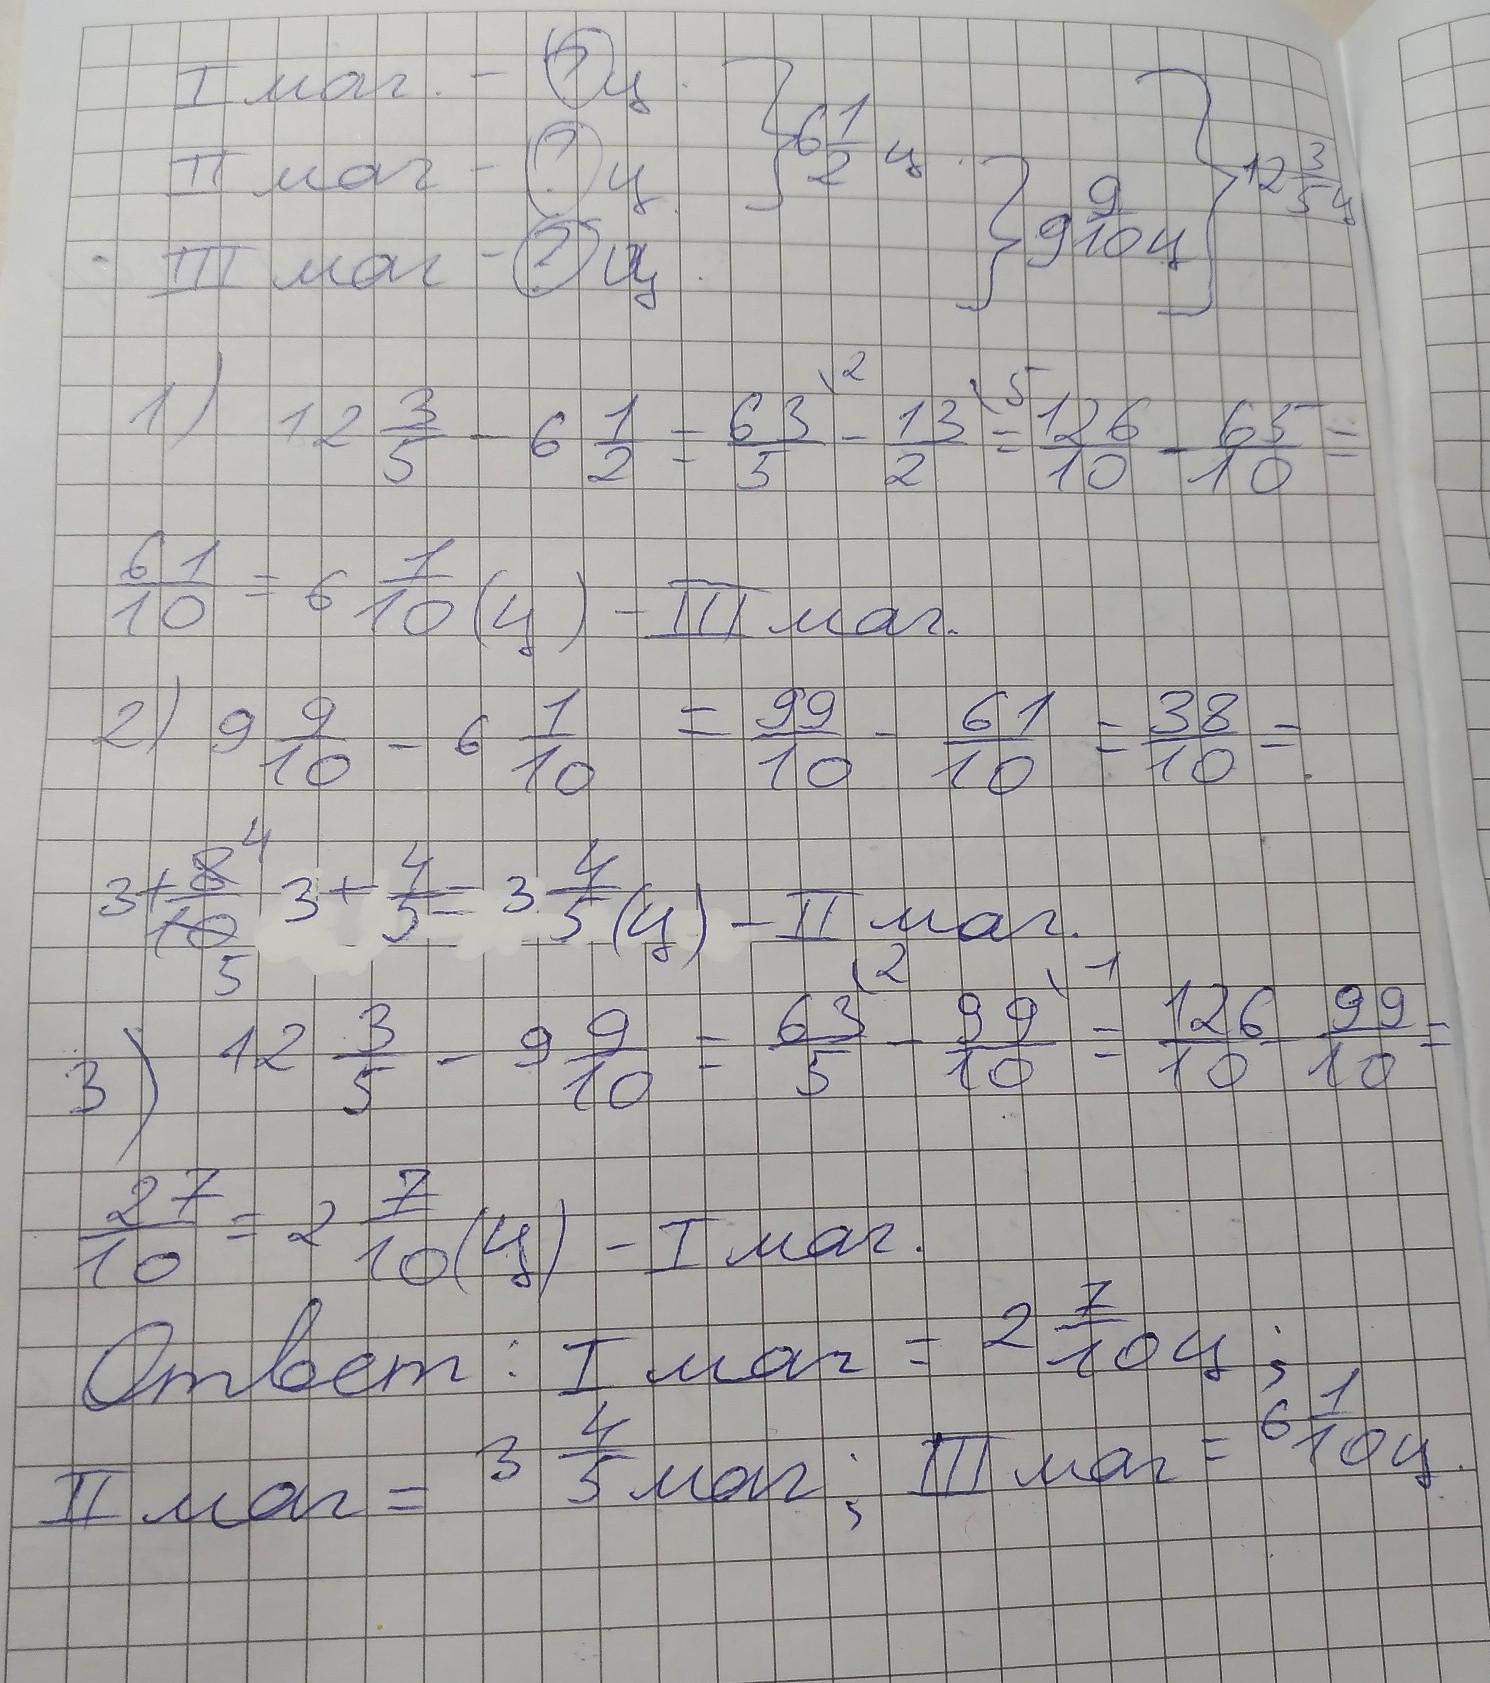 I маг. - ? ц.
II маг - ? ц.
III маг - ? ц.
6 1/2 ц.
9 9/10 ц
12 3/5 ц
1) 12 3/5 - 6 1/2 = 63/5 \2 - 13/2 \5 = 126/10 - 65/10 =
61/10 = 6 1/10 (ц) - III маг.
2) 9 9/10 - 6 1/10 = 99/10 - 61/10 = 38/10 =
3 + 8/10 4 5 3 + 4/5 = 3 4/5 (ц) - II маг.
3) 12 3/5 - 9 9/10 = 63/5 \2 - 99/10 \1 = 126/10 - 99/10 =
27/10 = 2 7/10 (ц) - I маг.
Ответ: I маг = 2 7/10 ц;
II маг = 3 4/5 маг; III маг = 6 1/10 ц.